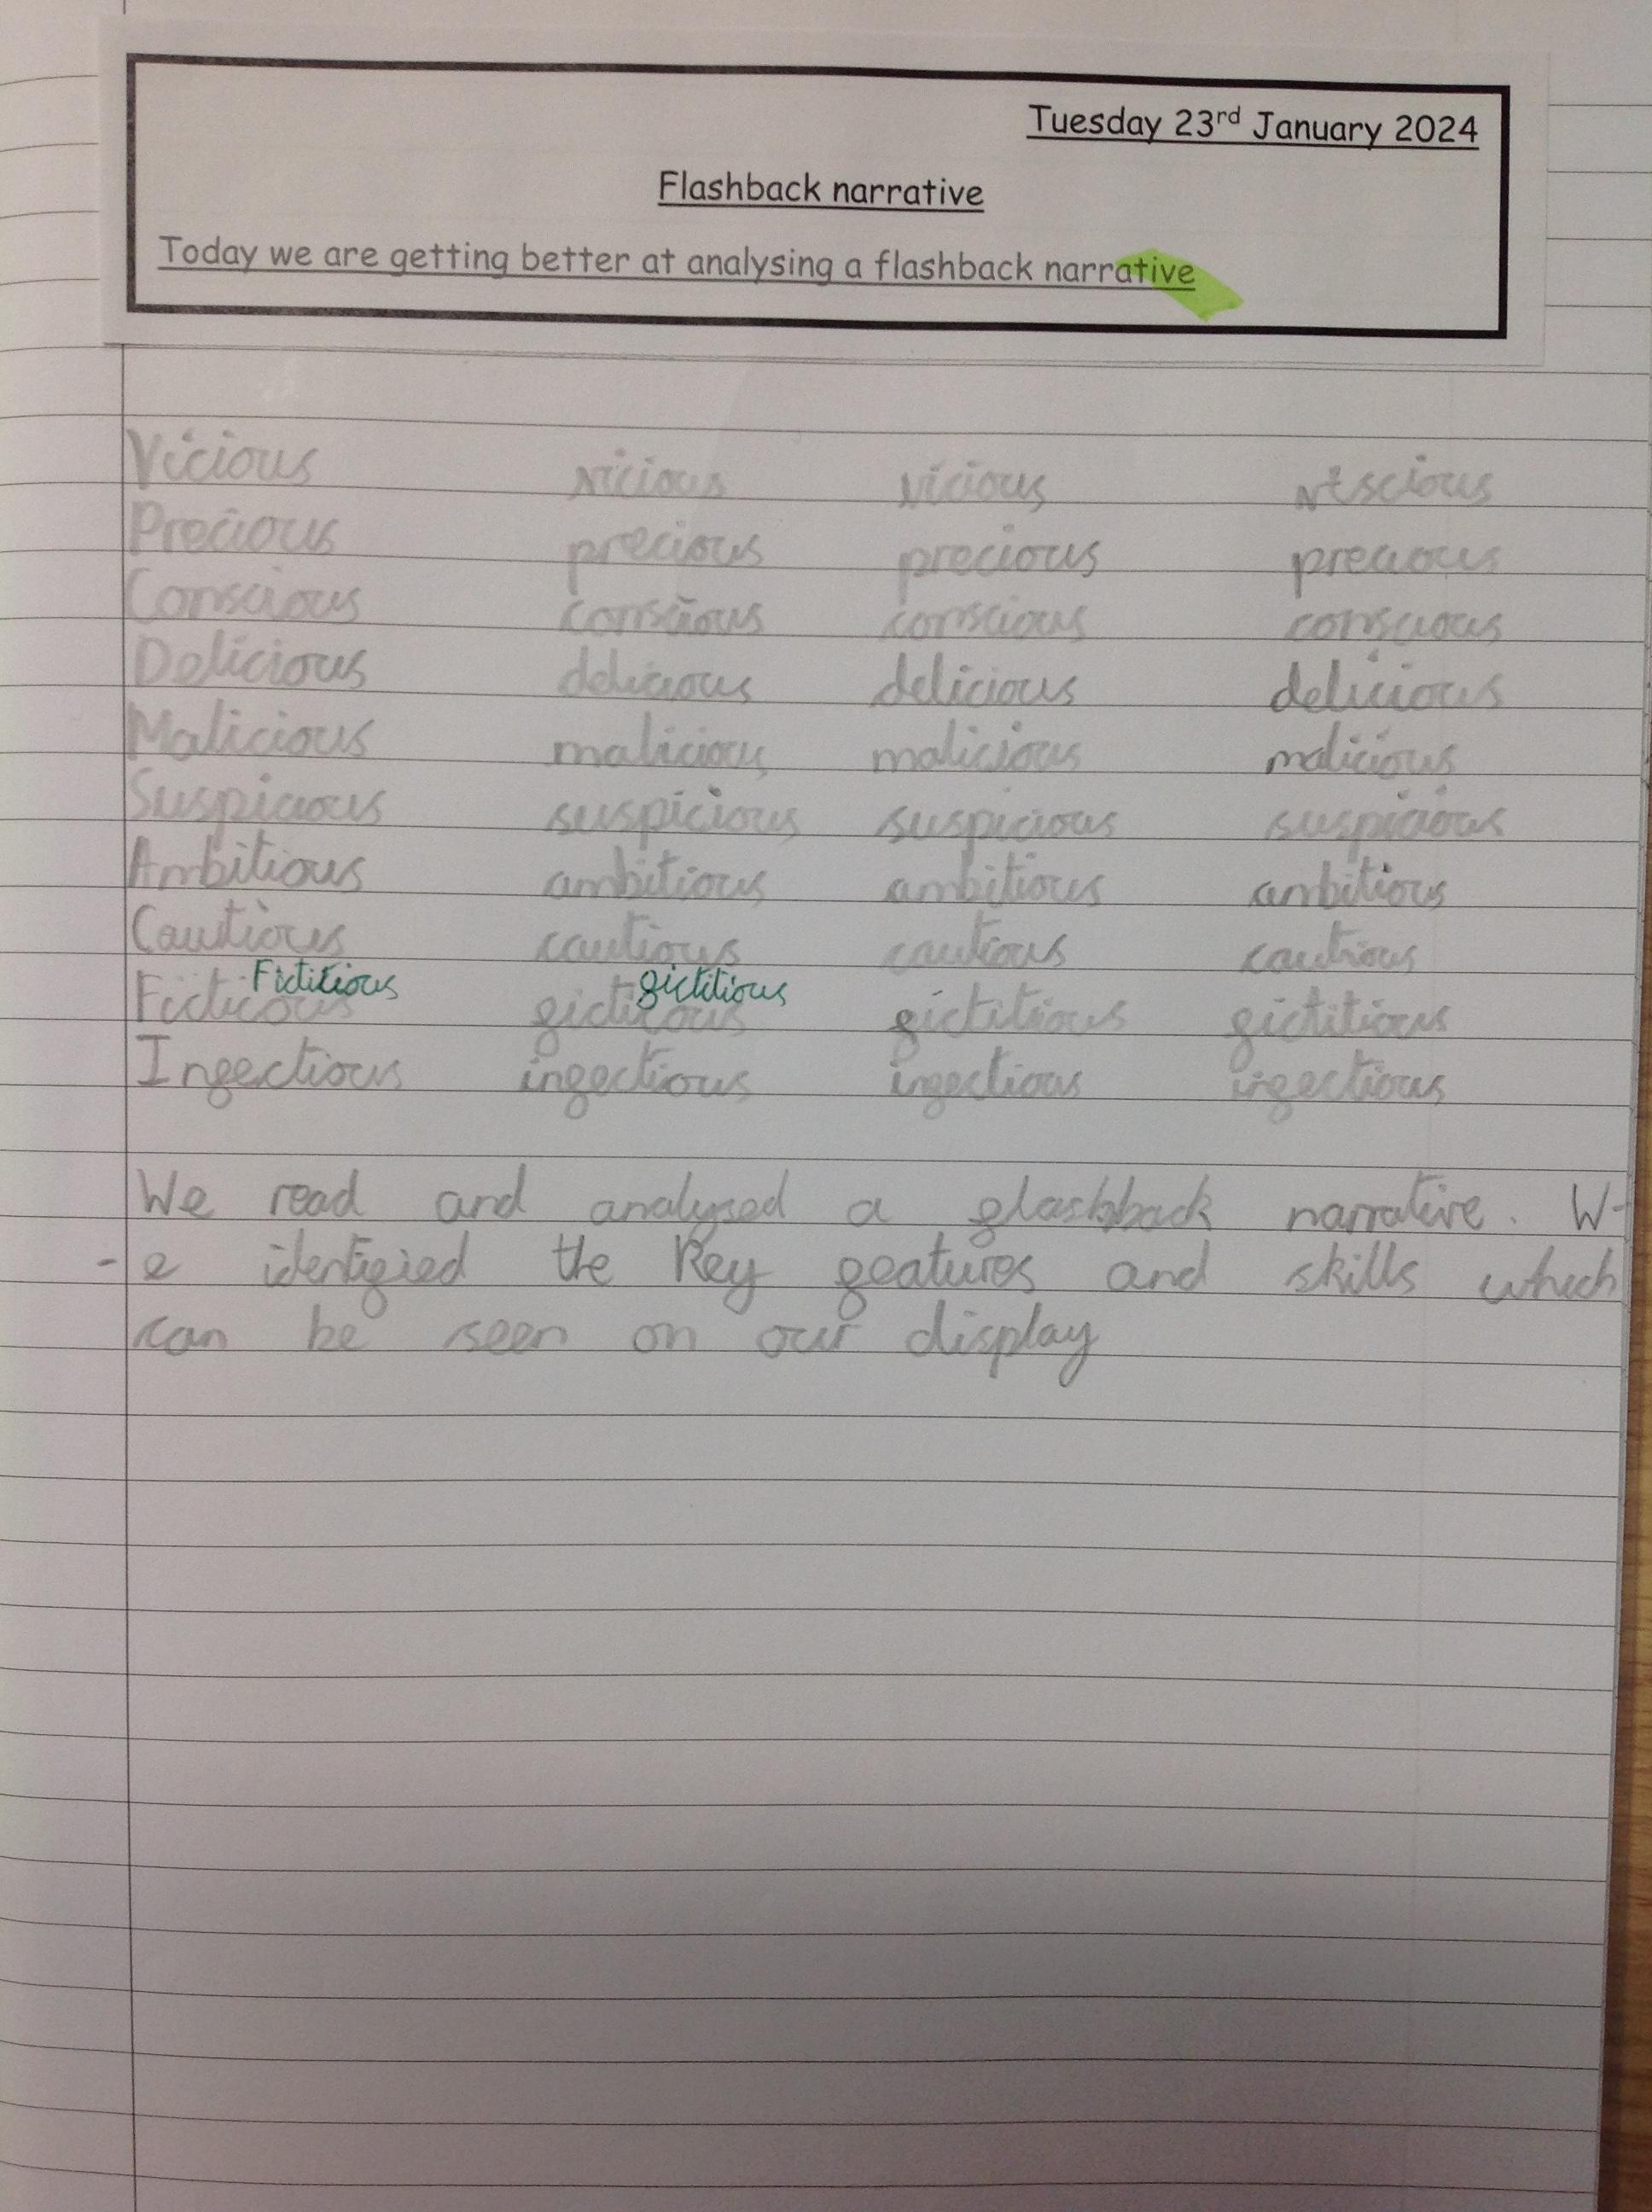 Tuesday 23rd January 2024
Flashback narrative
Today we are getting better at analysing a flashback narrative
Vicious vicious vicious viscious
Precious precious precious precious
Conscious conscious conscious conscious
Delicious delicious delicious delicious
Malicious malicious malicious malicious
Suspicious suspicious suspicious suspicious
Ambitious ambitious ambitious ambitious
Cautious cautious cautious cautious
Fictitious fictitious
Ficticous ficticous fictitious fictitious
Infectious infectious infectious infectious
We read and analysed a flashback narrative. W-
-e identified the key features and skills which
can be seen on our display